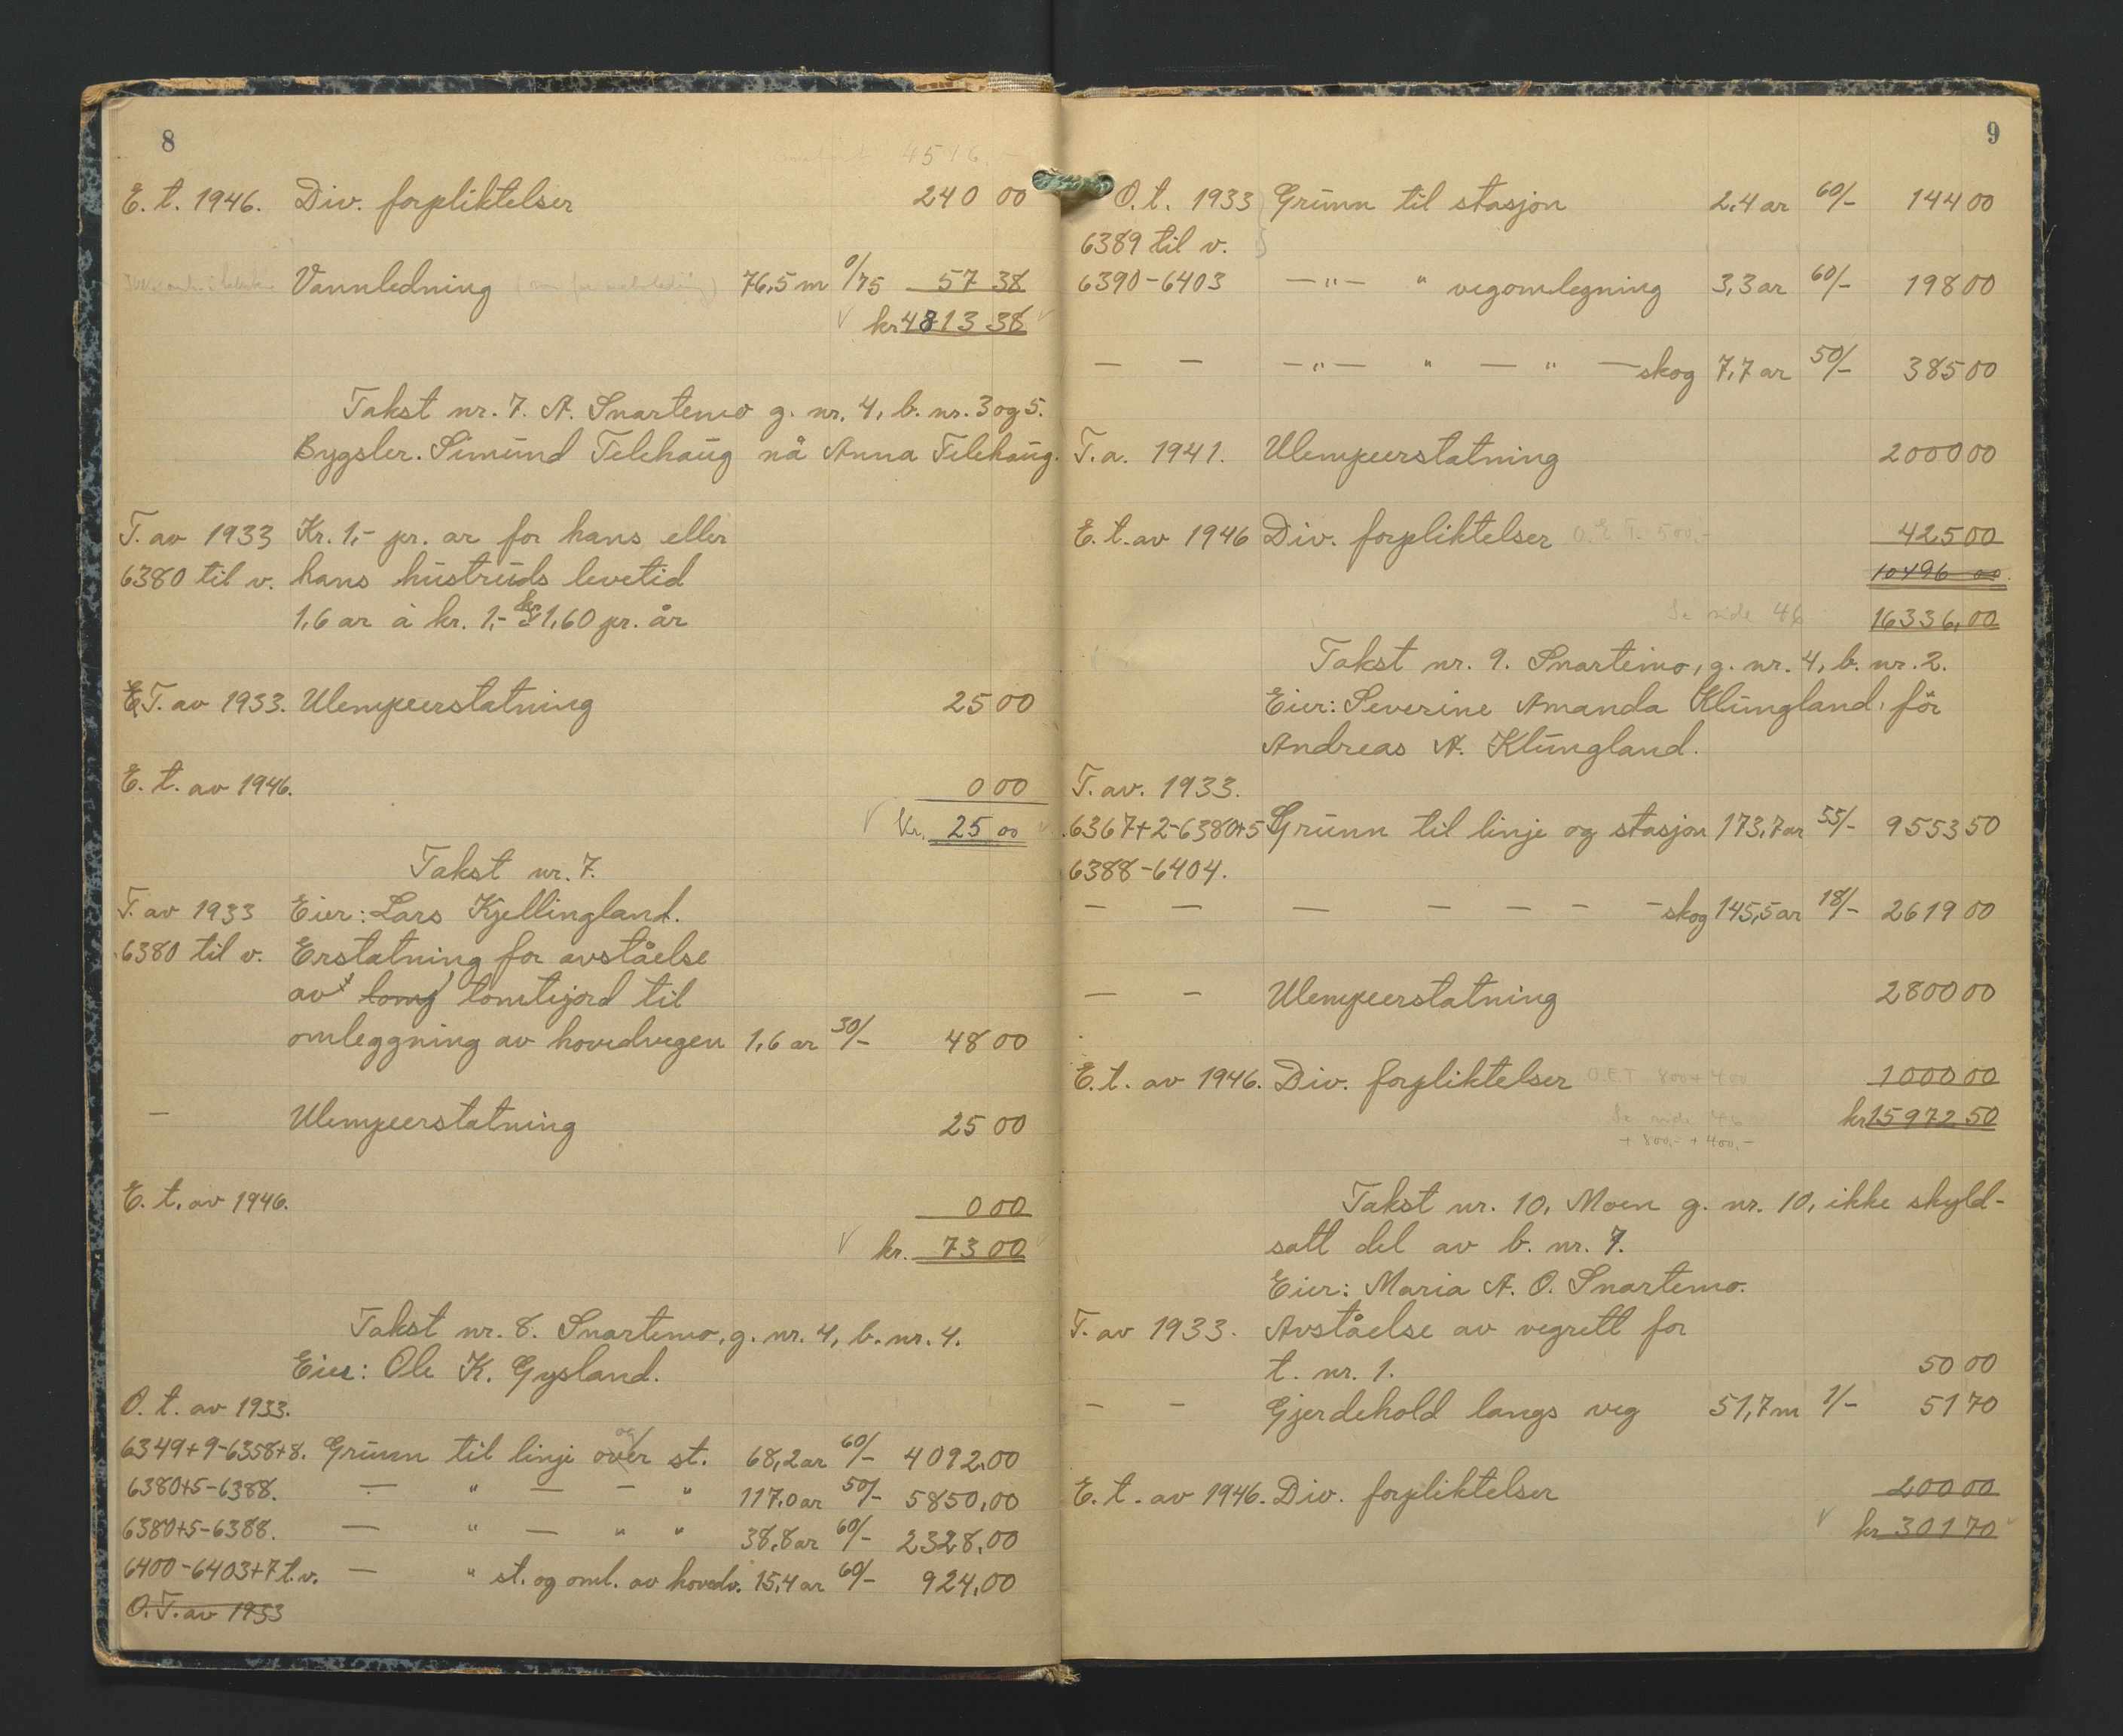 8
4516.-
E. t. 1946. Div. forpliktelser 240 00
Vannledning 76,5 m 0/75 57 38
kr 4813 38
Takst nr. 7. A. Snartemo g. nr. 4, b. nr. 3 og 5.
Bygsler. Simund Telehaug nå Anna Telehaug.
T. av 1933 Kr. 1,- pr. ar for hans eller
6380 til v. hans hustruds levetid
1,6 ar à kr. 1,- = kr 1,60 pr. år
E.T. av 1933. Ulempeerstatning 25 00
E. t. av 1946. 0 00
Kr. 25 00
Takst nr. 7.
T. av 1933 Eier: Lars Kjellingland.
6380 til v. Erstatning for avståelse
av tomtejord til
omleggning av hovedvegen 1,6 ar 30/- 48 00
— Ulempeerstatning 25 00
E. t. av 1946. 0 00
kr. 73 00
Takst nr. 8. Snartemo, g. nr. 4, b. nr. 4.
Eier: Ole K. Gysland.
O. t. av 1933.
6349+9-6358+8. Grunn til linje over og st. 68,2 ar 60/- 4092,00
6380+5-6388. — " — — " 117,0 ar 50/- 5850,00
6380+5-6388. — " — " " 38,8 ar 60/- 2328,00
6400-6403+7 t.v. — " st. og oml. av hovedv. 15,4 ar 60/- 924,00
O. T. av 1933
9
O. t. 1933 Grunn til stasjon 2,4 ar 60/- 144 00
6389 til v.
6390-6403 —"— " vegomlegning 3,3 ar 60/- 198 00
— — —"— " — " — skog 7,7 ar 50/- 385 00
T. a. 1941. Ulempeerstatning 2000 00
E. t. av 1946 Div. forpliktelser O. E. T. 500,- 425 00
10496 00
Se side 46 16336,00
Takst nr. 9. Snartemo, g. nr. 4, b. nr. 2.
Eier: Severine Amanda Klungland, för
Andreas A. Klungland.
T. av. 1933.
6367+2-6380+5 Grunn til linje og stasjon 173,7 ar 55/- 9553 50
6388-6404.
— — — — — — — skog 145,5 ar 18/- 2619 00
— — Ulempeerstatning 2800 00
E. t. av 1946. Div. forpliktelser O.E.T 800+400 1000 00
Se side 46 kr 15972 50
+ 800,- + 400,-
Takst nr. 10, Moen g. nr. 10, ikke skyld-
satt del av b. nr. 7.
Eier: Maria A. O. Snartemo.
T. av 1933. Avståelse av vegrett for
t. nr. 1. 50 00
— — Gjerdehold langs veg 51,7 m 1/- 51 70
E. t. av 1946. Div. forpliktelser 200 00
kr 301 70